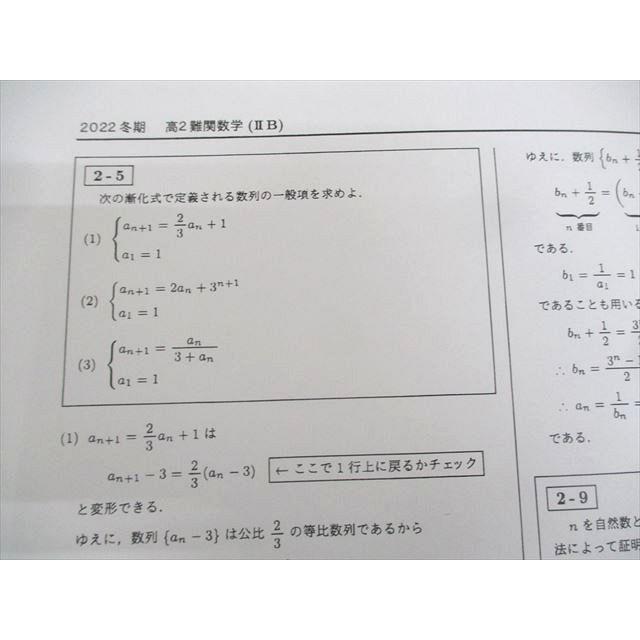 2022 冬期 高2難関数学 (ⅡB)
2-5
次の漸化式で定義される数列の一般項を求めよ.
(1) { a_{n+1} = 2/3 a_n + 1
a_1 = 1
(2) { a_{n+1} = 2a_n + 3^{n+1}
a_1 = 1
(3) { a_{n+1} = a_n/(3 + a_n)
a_1 = 1
(1) a_{n+1} = 2/3 a_n + 1 は
a_{n+1} − 3 = 2/3 (a_n − 3) ← ここで1行上に戻るかチェック
と変形できる.
ゆえに, 数列 {a_n − 3} は公比 2/3 の等比数列であるから
ゆえに, 数列 {b_n +
b_n + 1/2 = (b_n
n 番目
である.
b_1 = 1/a_1 = 1
であることも用いる
b_n + 1/2 =
∴ b_n =
∴ a_n = 1/b_n =
である.
2-9
n を自然数と
法によって証明